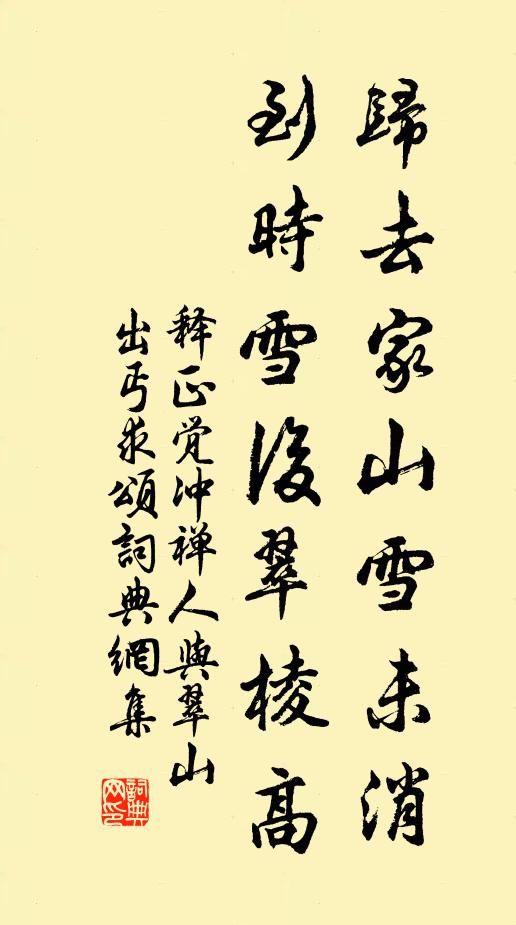 歸去家山雪未消
到時雪後翠棱高
释正觉冲禅人與翠山
出丐求頌詞典網集
詞典
网印